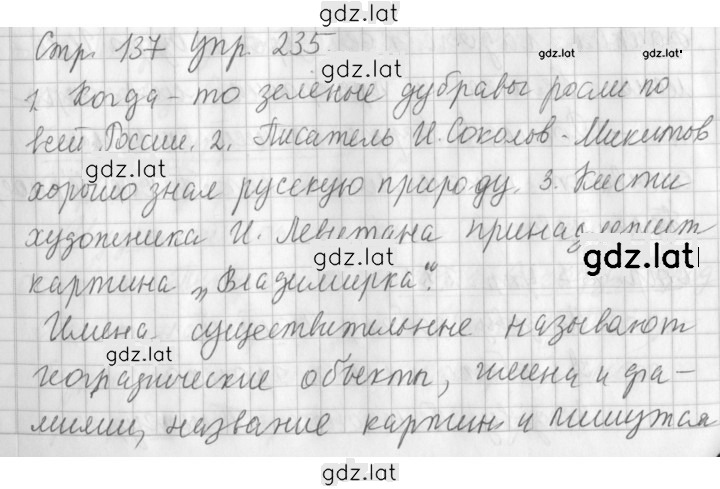 gdz.lat
Стр. 137 Упр. 235.
gdz.lat gdz.lat
gdz.lat
1. Когда-то зелёные дубравы росли по
всей России. 2. Писатель И. Соколов-Микитов
gdz.lat
хорошо знал русскую природу. 3. Кисти
художника И. Левитана принадлежит
gdz.lat gdz.lat
картина „Владимирка".
Имена существительные называют
gdz.lat
географические объекты, имена и фа-
милии, название картин и пишутся
gdz.lat